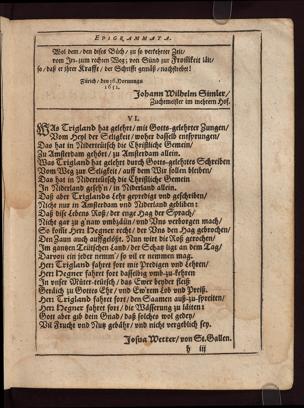 EPIGRAMMATA.
Wol dem / den dises Buͤch / zu so verkehrter Zeit /
vom zum rechten Weg; von Suͤnd zur Fromkeit laͤit /
so / daß er ihrer Krafft / der Schrifft gemaͤß / nachstrebet!
Zuͤrich / den 26. Hornungs
1652.
Johann Wilhelm Simler,
Zuchtmeister im mehrern Hof.
VI.
WAs Trigland hat gelehrt / mit Gotts-gelehrter Zungen /
Vom Heyl der Seligkeit / woher dasselb entsprungen /
Das hat in Niderteütsch die Christliche Gemein /
Zu Amsterdam gehoͤrt / zu Amsterdam allein.
Was Trigland hat gelehrt durch Gotts-gelehrtes Schreiben
Vom Weg zur Seligkeit / auff dem Wir sollen bleiben /
Das hat in Niderteütsch die Christliche Gemein
In Niderland geseh'n / in Niderland allein.
Daß aber Triglands Lehr geprediget und geschriben /
Nicht nur in Amsterdam und Niderland gebliben:
Daß dise Lebens Roß / der enge Hag der Sprach /
Nicht gar zu g'nam umbzaͤun / und Uns verborgen mach /
So sollt Herr Negner recht / der Uns den Hag gebrochen /
Den Zaun auch auffgeloͤßt. Nun wirt die Roß gerochen /
Im gantzen Teütschen Land / der Schatz ligt an dem Tag /
Darvon ein jeder nemm' / so vil er nemmen mag.
Herr Trigland fahret fort mit Predigen und Lehren /
Herr Negner fahret fort dasselbig umb-zu-kehren
In unser Muͤter-teütsch / das Ewer beyder fleiß
Geraͤich zu Gottes Ehr / und Ew'rem Lob und Preiß.
Herr Trigland fahret fort / den Saamen auß-zu-spreiten /
Herr Negner fahret fort / die Waͤsserung zu laͤiten:
Gott aber gib dein Gnad / daß solches wol gedey /
Vil Frucht und Nutz gebaͤhr / und nicht vergeblich sey.
Josua Wetter / von St. Gallen.
h iij